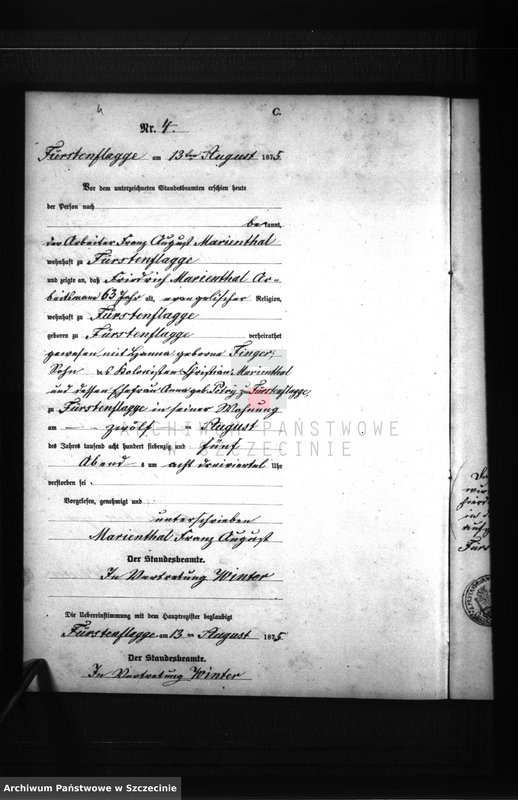 4
C.
Nr. 4.
Fürstenflagge am 13ten August 1875
Vor dem unterzeichneten Standesbeamten erschien heute
der Person nach
bekannt,
der Arbeiter Franz August Marienthal
wohnhaft zu Fürstenflagge
und zeigte an, daß Friedrich Marienthal Ar-
beitsmann 63 Jahr alt, evangelischer Religion,
wohnhaft zu Fürstenflagge
geboren zu Fürstenflagge verheirathet
gewesen mit Hanna geborne Finger,
Sohn des Kolonisten Christian Marienthal
und dessen Ehefrau Anna geb. Petry zu Fürstenflagge,
zu Fürstenflagge in seiner Wohnung
am zwölf ten August
des Jahres tausend acht hundert siebenzig und fünf
Abend s um acht dreiviertel Uhr
verstorben sei
Vorgelesen, genehmigt und
unterschrieben
Marienthal Franz August
Der Standesbeamte.
In Vertretung Winter
Die Uebereinstimmung mit dem Hauptregister beglaubigt
Fürstenflagge am 13 ten August 1875
Der Standesbeamte.
In Vertretung Winter
ARCHIWUM PAŃSTWOWE
W SZCZECINIE
Archiwum Państwowe w Szczecinie